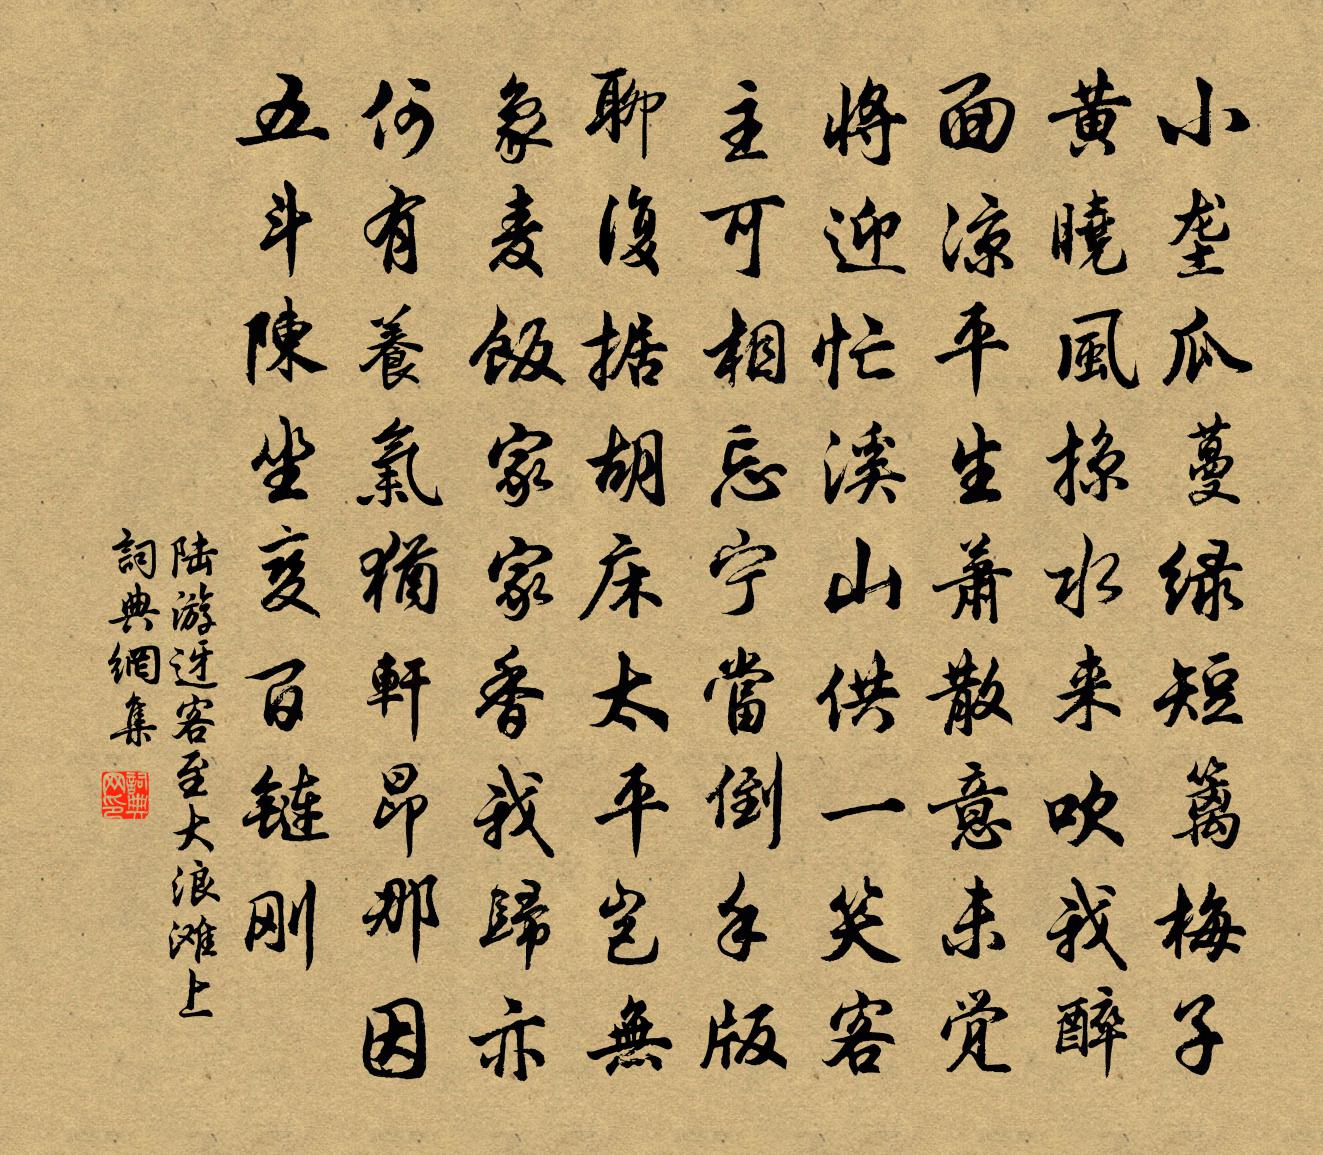 小垄瓜蔓绿短篱梅子
黄曉風掠水来吹我醉
面凉平生萧散意未觉
将迎忙溪山供一笑客
主可相忘宁當倒手版
聊復据胡床太平岂無
象麦飯家家香我歸亦
何有養氣猶軒昂那因
五斗陳坐变百鏈刚
陆游迓客至大浪滩上
詞典網集